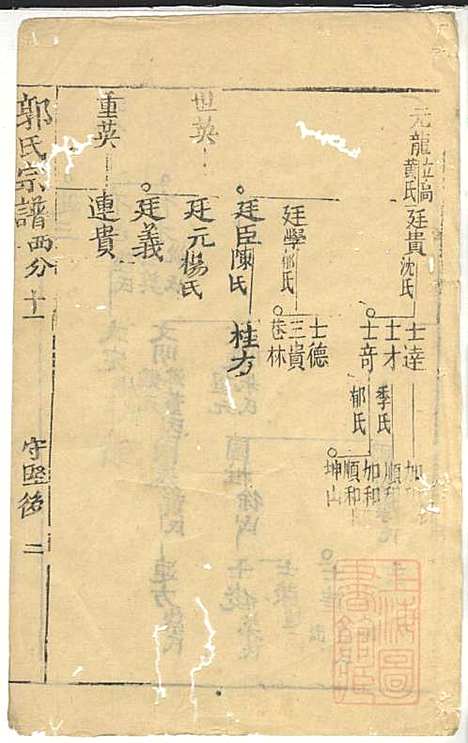 元龍
黃氏
廷貴
沈氏
士達
士才
士奇
季氏
郁氏
加
順和
加和
順和
坤山
廷學
郁氏
士德
三貴
巷林
廷臣陳氏
桂方
廷元楊氏
廷義
世英
重英
連貴
郭氏宗譜 西分十一 守堅後 二
上海圖書館藏